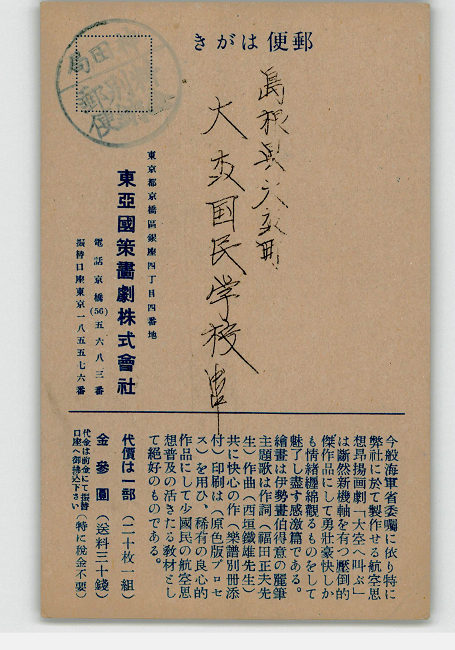 郵便はがき
島根県大東町
大東国民学校
東京都京橋區銀座四丁目四番地
東亞國策畫劇株式會社
電話京橋(56)五六八三番
振替口座東京一八五五七六番
今般海軍省委囑に依り特に
弊社に於て製作せる航空思
想昂揚画劇「大空へ叫ぶ」
は斷然新機軸を有つ壓倒的
傑作品にして勇壯豪快しか
も情緒纏綿觀るものをして
魅了し盡す感激篇である。
繪畫は伊勢畫伯得意の麗筆
主題歌は作詞(福田正夫先
生)作曲(西垣鐵雄先生)
共に快心の作(樂譜別册添
付)印刷は(原色版プロセ
ス)を用ひ、稀有の良心的
作品にして少國民の航空思
想普及の活きたる敎材とし
て絶好のものである。
代價は一部(二十枚一組)
金參圓(送料三十錢)
代金は前金にて振替
口座へ御拂込下さい
(特に税金不要)